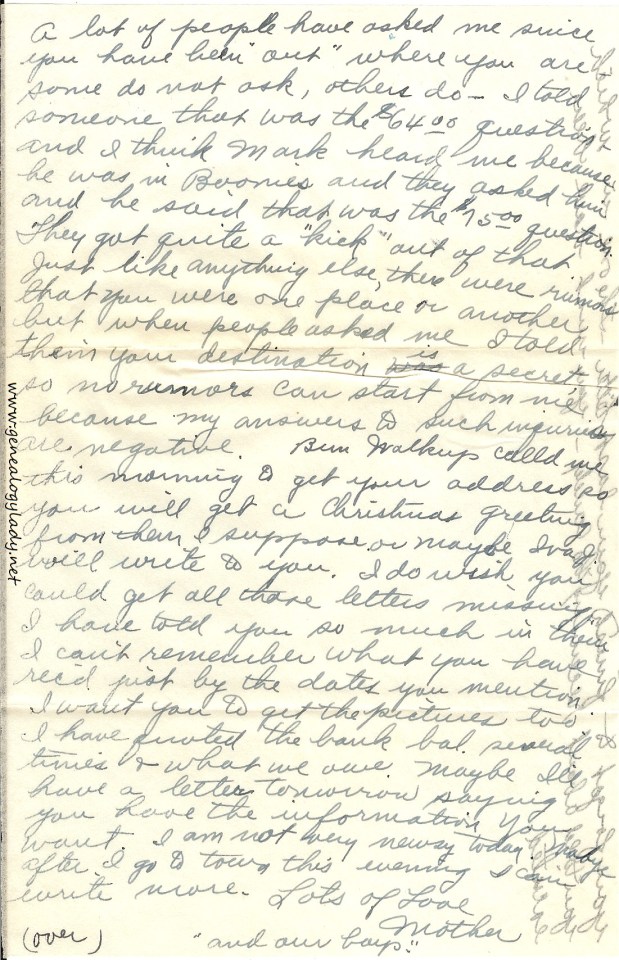 A lot of people have asked me since
you have been "out" where you are
some do not ask, others do - I told
someone that was the $64.00 question
and I think Mark heard me because
he was in Boonies and they asked him
and he said that was the $75.00 question.
They got quite a "kick" out of that
Just like anything else, there were rumors
that you were one place or another
but when people asked me I told
them your destination was is a secret
so no rumors can start from me
because my answers to such inquiries
are negative. Bun Walkup called me
this morning to get your address so
you will get a Christmas greeting
from them I suppose or maybe
will write to you. I do wish you
could get all those letters missing
I have told you so much in them
I can't remember what you have
rec'd just by the dates you mention.
I want you to get the pictures too
I have quoted the bank bal. several
times & what we owe. Maybe I'll
have a letter tomorrow saying
you have the information you
want. I am not very newsy today. Maybe
after I go to town this evening I can
write more. Lots of Love
Mother
(over) "and our boys."
www.genealogylady.net